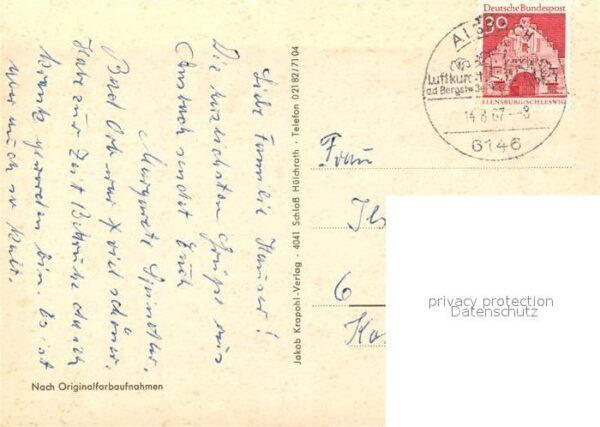 Liebe Familie Hauser!
Die herzlichsten Grüße aus
sendet Euch
Margarete
Bad Orb war viel schöner.
Habe zur Zeit da ich
krank geworden bin. Es ist
hier auch so kalt.
Nach Originalfarbaufnahmen
Jakob Krapohl-Verlag · 4041 Schloß Hülchrath · Telefon 0 21 82/71 04
Deutsche Bundespost
30
FLENSBURG/SCHLESWIG
Luftkurort
a.d. Bergstraße
14.8.67.-8
6146
Frau
6
privacy protection
Datenschutz